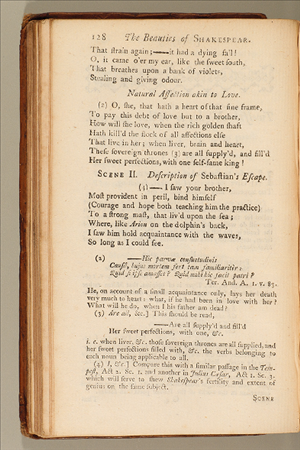 128 The Beauties of SHAKESPEAR.
That ſtrain again;——it had a dying fall!
O, it came o'er my ear, like the ſweet ſouth,
That breathes upon a bank of violets,
Stealing and giving odour.
Natural Affection akin to Love.
(2) O, ſhe, that hath a heart of that fine frame,
To pay this debt of love but to a brother,
How will ſhe love, when the rich golden ſhaft
Hath kill'd the flock of all affections elſe
That live in her; when liver, brain and heart,
Theſe ſovereign thrones (3) are all ſupply'd, and fill'd
Her ſweet perfections, with one ſelf-ſame king!
SCENE II. Deſcription of Sebaſtian's Eſcape.
(3)—— I ſaw your brother,
Moſt provident in peril, bind himſelf
(Courage and hope both teaching him the practice)
To a ſtrong maſt, that liv'd upon the ſea;
Where, like Arion on the dolphin's back,
I ſaw him hold acquaintance with the waves,
So long as I could ſee.
(2) ——Hic parvæ conſuetudinis
Cauſâ, hujus mortem fert tam familiariter:
Quid ſi ipſe amaſſet? Quid mihi hic faciet patri?
TER. And. A. 1. s. 85.
He, on account of a ſmall acquaintance only, lays her death
very much to heart: what, if he had been in love with her?
What will he do, when I his father am dead?
(3) Are all, &c.] This ſhould be read,
——Are all ſupply'd and fill'd
Her ſweet perfections, with one, &c.
i. e. when liver, &c. thoſe ſovereign thrones are all ſupplied, and
her ſweet perfections filled with, &c. the verbs belonging to
each noun being applicable to all.
(3) I, &c.] Compare this with a ſimilar paſſage in the Tem-
peſt, Act 2. Sc. 1. and another in Julius Cæſar, Act 1. Sc. 3.
which will ſerve to ſhew Shakeſpear's fertility and extent of
genius on the ſame ſubject.
SCENE